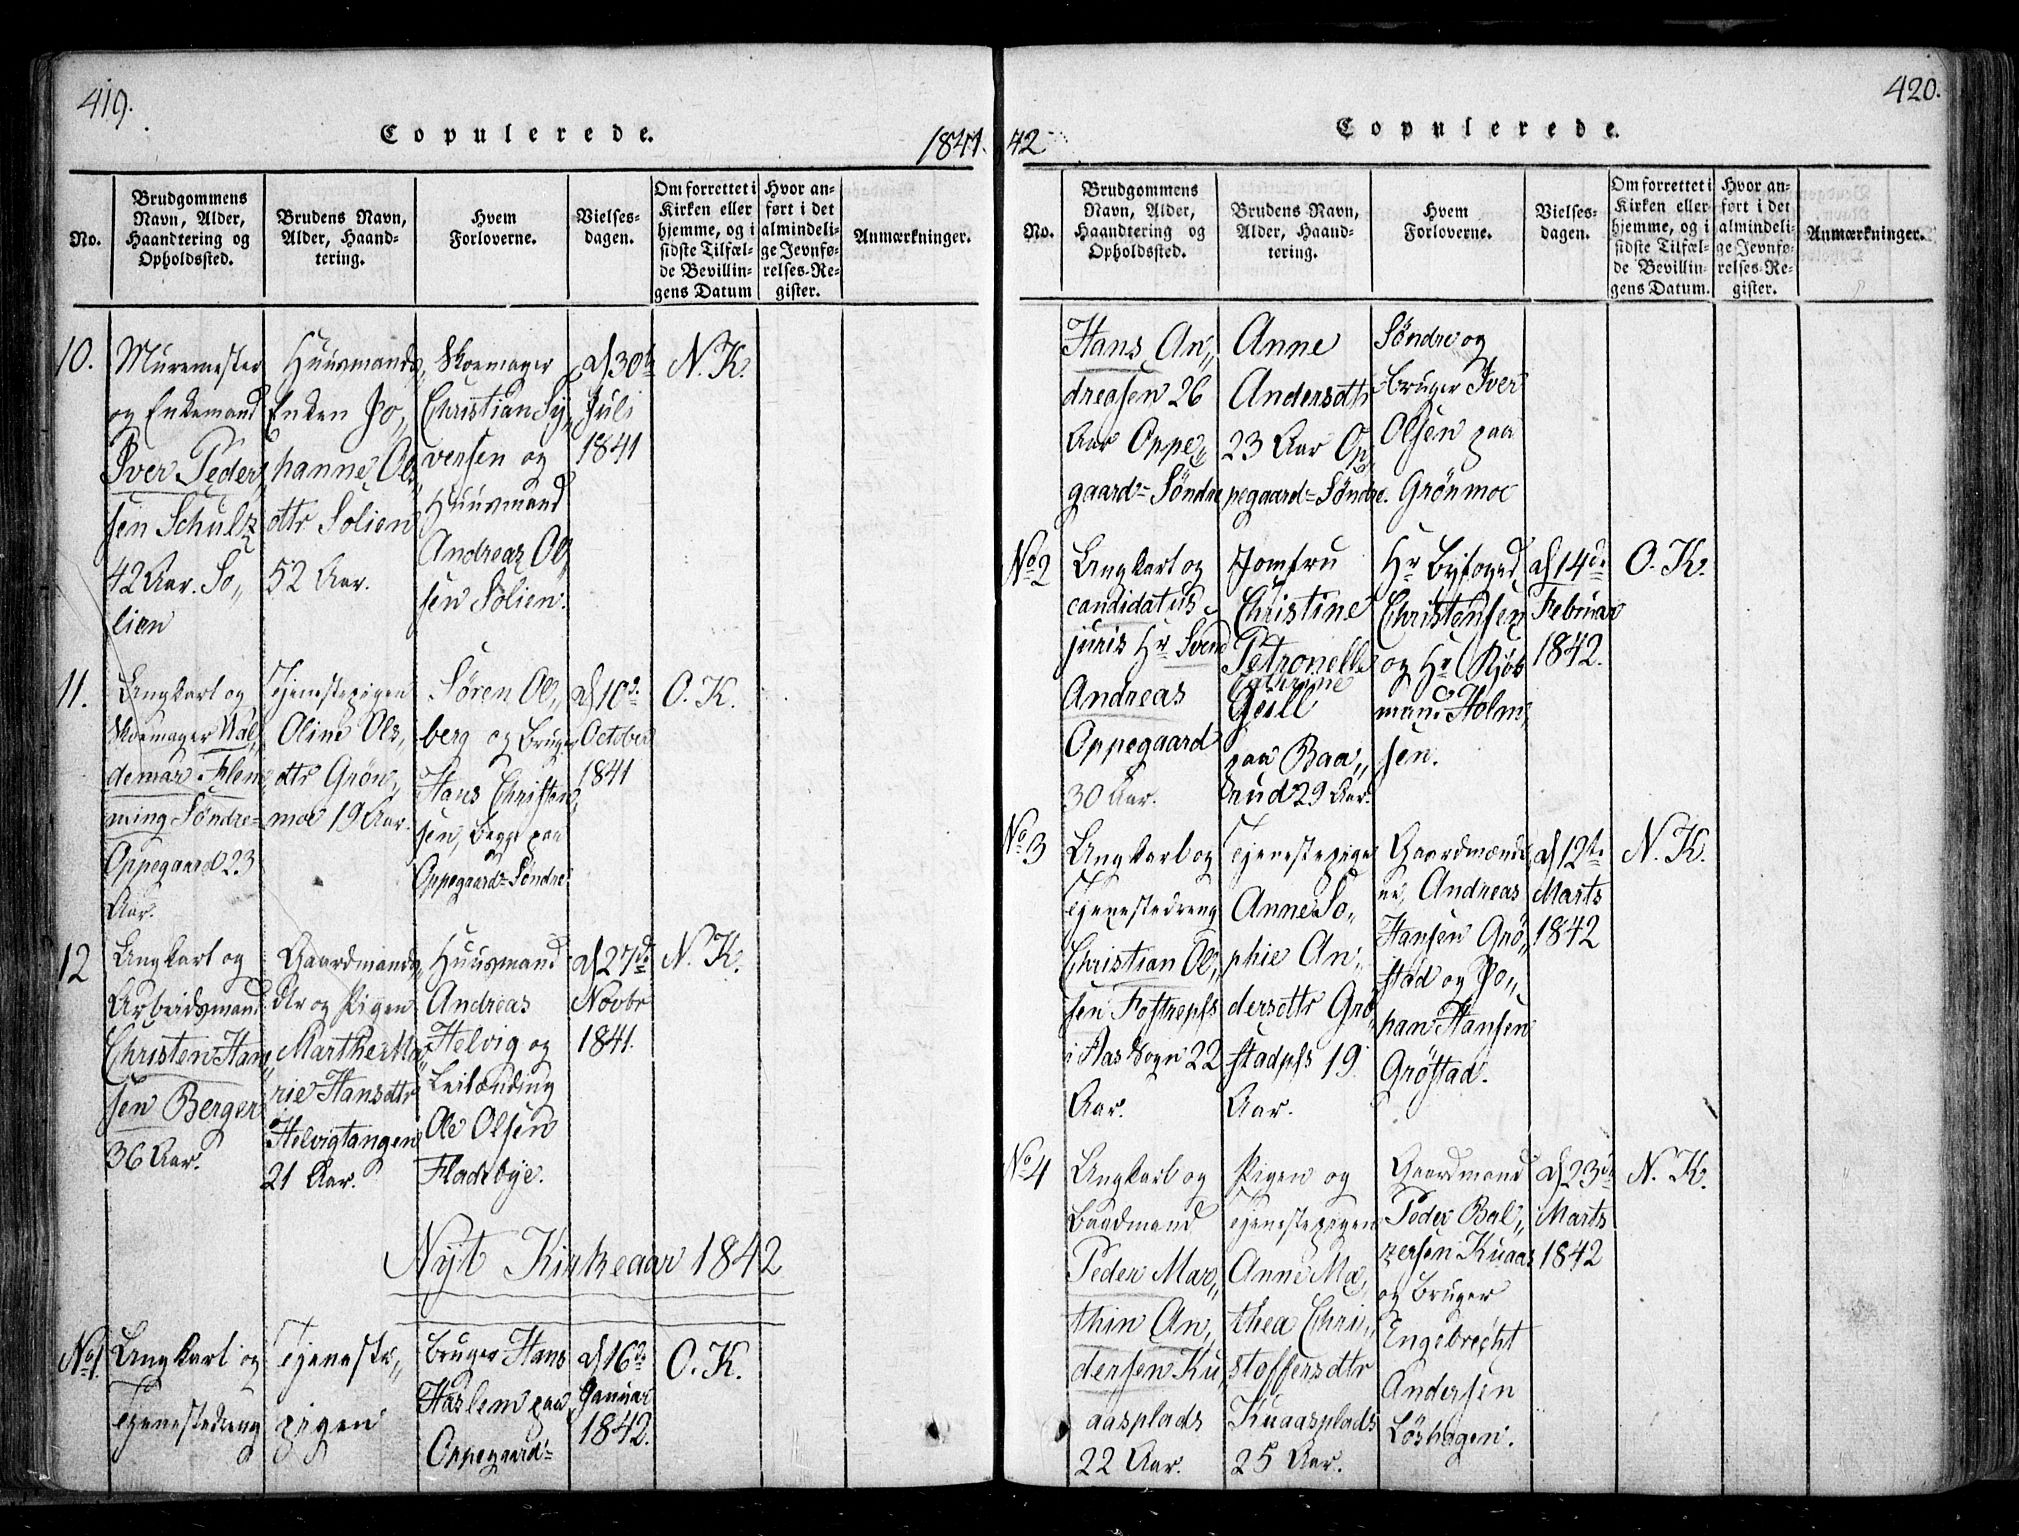 419.
Copulerede.
1841.
No.
Brudgommens Navn, Alder, Haandtering og Opholdssted.
Brudens Navn, Alder, Haandtering.
Hvem Forloverne.
Vielsesdagen.
Om forrettet i Kirken eller hjemme, og i sidste Tilfælde Bevillingens Datum
Hvor anført i det almindelige Jevnførelses-Register.
Anmærkninger.
10.
Muremester
og Enkemand
Iver Peder„
sen Schultz
42 Aar. So„
lien
Huusmands„
Enken Jo„
hanne Ols„
dtr Solien
52 Aar.
Skoemager
Christian Sy„
versen og
Huusmand
Andreas Ol„
sen Solien.
d 30te
Juli
1841
N. K.
11.
Ungkarl og
Skoemager Wal„
demar Flem„
ming Søndre-
Oppegaard 23
Aar.
Tjenestepigen
Oline Ols„
dtr Grøn„
moe 19 Aar.
Søren Ol„
berg og Bruger
Hans Christen„
sen, begge paa
Oppegaard=Søndre.
d 10de
October
1841
O. K.
12
Ungkarl og
Arbeidsmand
Christen Han„
sen Berger
36 Aar.
Gaardmands„
dtr og Pigen
Marthe Ma„
rie Hansdtr
Helvigtangen
21 Aar.
Huusmand
Andreas
Helvig og
Leilænding
Ole Olsen
Fladebye.
d 27de
Novbr
1841.
N. K.
Nyt Kirkeaar 1842
No 1.
Ungkarl og
Tjenestedreng
Tjeneste„
pigen
Bruger Hans
Haslem paa
Oppegaard=
d 16de
Januar
1842.
O. K.
420.
Copulerede.
42
No.
Brudgommens Navn, Alder, Haandtering og Opholdssted.
Brudens Navn, Alder, Haandtering.
Hvem Forloverne.
Vielsesdagen.
Om forrettet i Kirken eller hjemme, og i sidste Tilfælde Bevillingens Datum.
Hvor anført i det almindelige Jevnførelses-Register.
Anmærkninger.
Hans An„
dreasen 26
Aar Oppe„
gaard=Søndre
Anne
Andersdtr
23 Aar Op„
pegaard=Søndre.
Søndre og
Bruger Iver
Olsen paa
Grønmoe
No 2
Ungkarl og
candidatus
juris Hr Svend
Andreas
Oppegaard
30 Aar.
Jomfru
Christine
Petronelle
Catrine
Geill
paa Baa„
rud 29 Aar.
Hr Byfoged
Christensen
og Hr Kjøb
mand Holm„
sen.
d 14de
Februar
1842.
O. K.
No 3
Ungkarl og
Tjenestedreng
Christian Ol„
sen Fostrepls
i Aas Sogn 22
Aar.
Tjenestepige
Anne So„
phie An„
dersdtr Grø„
stadpls 19
Aar.
Gaardmænde
ne, Andreas
Hansen Grø„
stad og Jo„
han Hansen
Grøstad.
d 12te
Marts
1842
N. K.
No 4
Ungkarl og
Baadmand
Peder Mar„
thin An„
dersen Ku„
aasplads
22 Aar.
Pigen og
Tjenestepigen
Anne Ma„
thea Chri„
stoffersdtr
Kuaasplads
25 Aar.
Gaardmand
Peder Bal„
zersen Kuaas
og Bruger
Engebrecht
Andersen
Løshagen.
d 23de
Marts
1842
N. K.